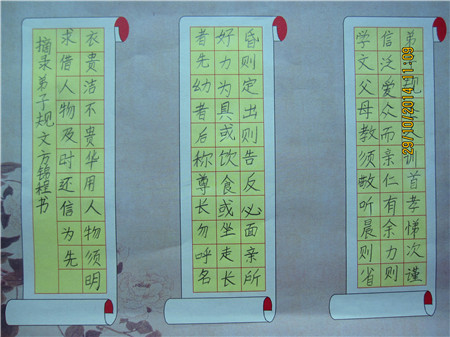 弟子规圣人训首孝悌次谨
信泛爱众而亲仁有余力则
学文父母教须敬听晨则省
昏则定出则告反必面亲所
好力为具或饮食或坐走长
者先幼者后称尊长勿呼名
衣贵洁不贵华用人物须明
求借人物及时还信为先
摘录弟子规文方锦程书
29/10/2014 11:09